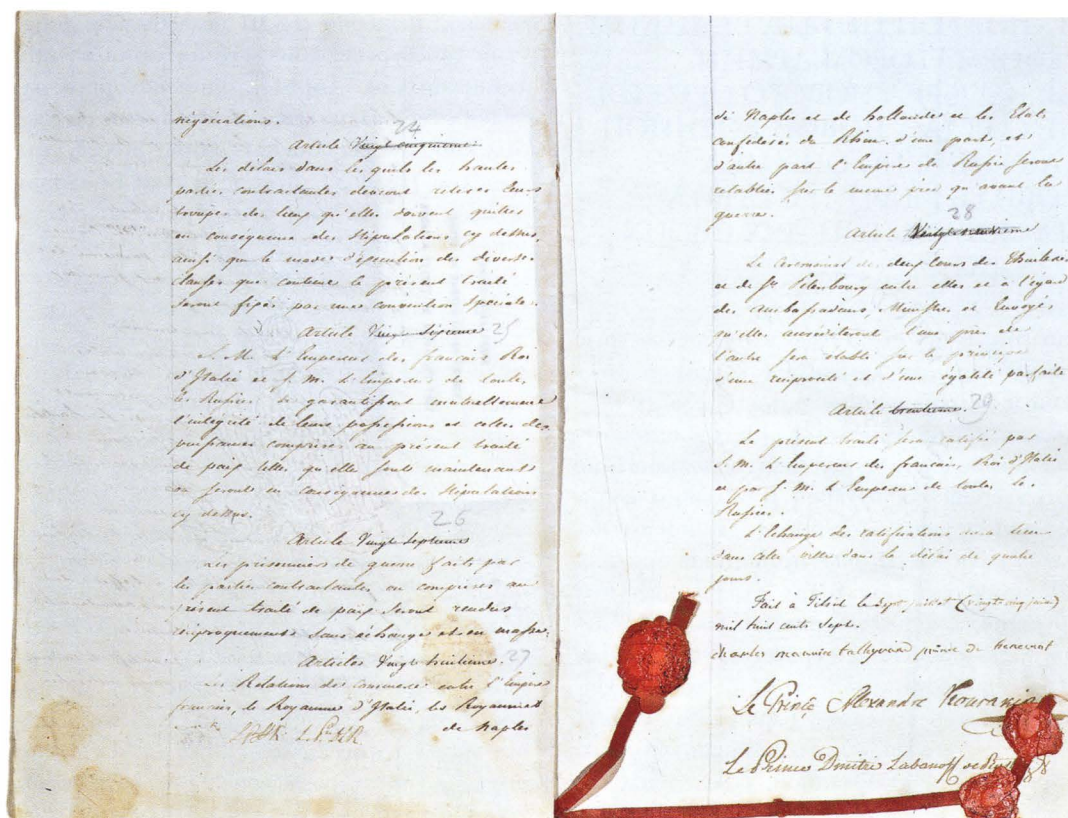 négociations.
Article Vingt cinquieme 24
Les délais dans lesquels les hautes
parties contractantes devront retirer leurs
troupes des lieux qu'elles doivent quitter
en conséquence des Stipulations cy dessus,
ainsi que le mode d'execution des diverses
clauses que contient le présent traité
seront fixés par une convention Speciale.
Article Vingt Sixieme 25
S. M. L'Empereur des français Roi
d'Italie et S. M. L'Empereur de toutes
les Russies se garantissent mutuellement
l'intégrité de leurs possessions et celles des
puissances comprises au présent traité
de paix telles qu'elles sont maintenant
ou seront en conséquence des Stipulations
cy dessus.
Article Vingt Septieme 26
Les prisonniers de guerre faits par
les parties contractantes ou comprises au
présent traité de paix seront rendus
réciproquement sans échange et en masse.
Articles Vingt huitieme. 27
Les Relations de commerce entre l'Empire
français, le Royaume d'Italie, les Royaumes
de Naples
de Naples et de hollande et les Etats
confédérés du Rhin d'une part, et
d'autre part l'Empire de Russie seront
retablies sur le meme pied qu'avant la
guerre.
Article Vingt neuvieme 28
Le Ceremonial des deux Cours des Thuileries
et de St. Pétersbourg entre elles et à l'égard
des Ambassadeurs, Ministres et Envoyés
qu'elles accréditeront l'une près de
l'autre sera établi sur le principe
d'une réciprocité et d'une égalité parfaite
Article trentieme. 29
Le présent traité sera ratifié par
S. M. L'Empereur des francais, Roi d'Italie
et par S. M. L'Empereur de toutes les
Russies.
L'échange des ratifications aura lieu
dans cette ville dans le délai de quatre
jours.
Fait à Tilsit le Sept juillet (vingt cinq juin)
mil huit cents Sept.
charles maurice talleyrand prince de benevent
Le Prince Alexandre Kourakin
Le Prince Dmitri Labanoff de